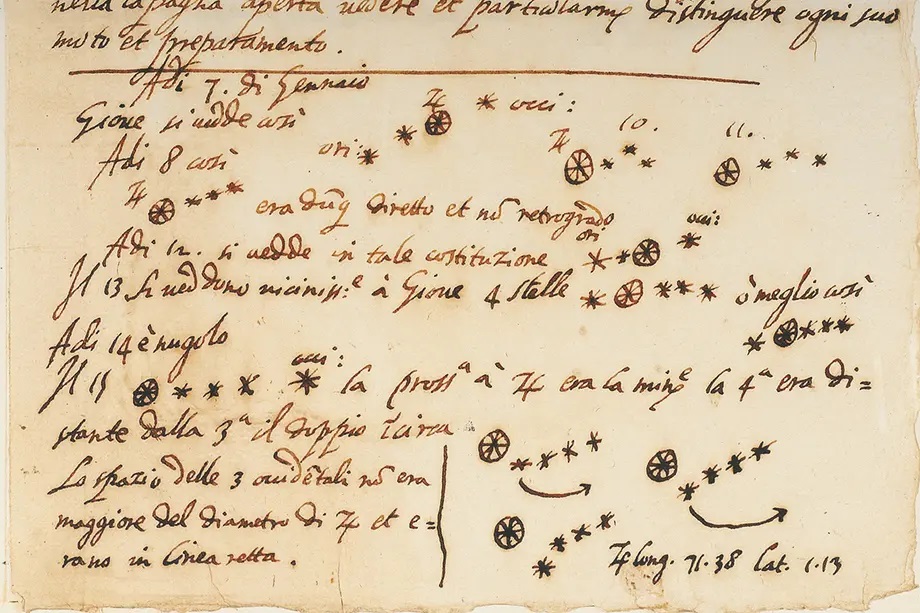 nella capagna aperta vedere et particularmᵉ distinguere ogni suo
moto et preparamento.
Adi 7. di Gennaio
Giove si vedde così
♃ occi:
ori:
Adi 8 così
♃
♃ 10. 11.
era dūq̃ diretto et nō retrogrado
Adi 12. si vedde in tale costituzione
ori occi:
Il 13 si veddono vicinissᵉ: à Giove 4 stelle
ò meglio così
Adi 14 è nugolo
Il 15
occi:
la prossᵃ à ♃ era la minᵉ la 4ᵃ era di=
stante dalla 3ᵃ il doppio īcirca
Lo spazio delle 3 occidētali nō era
maggiore del diametro di ♃ et e=
rano in linea retta.
♃ long. 71.38 lat. 1.13